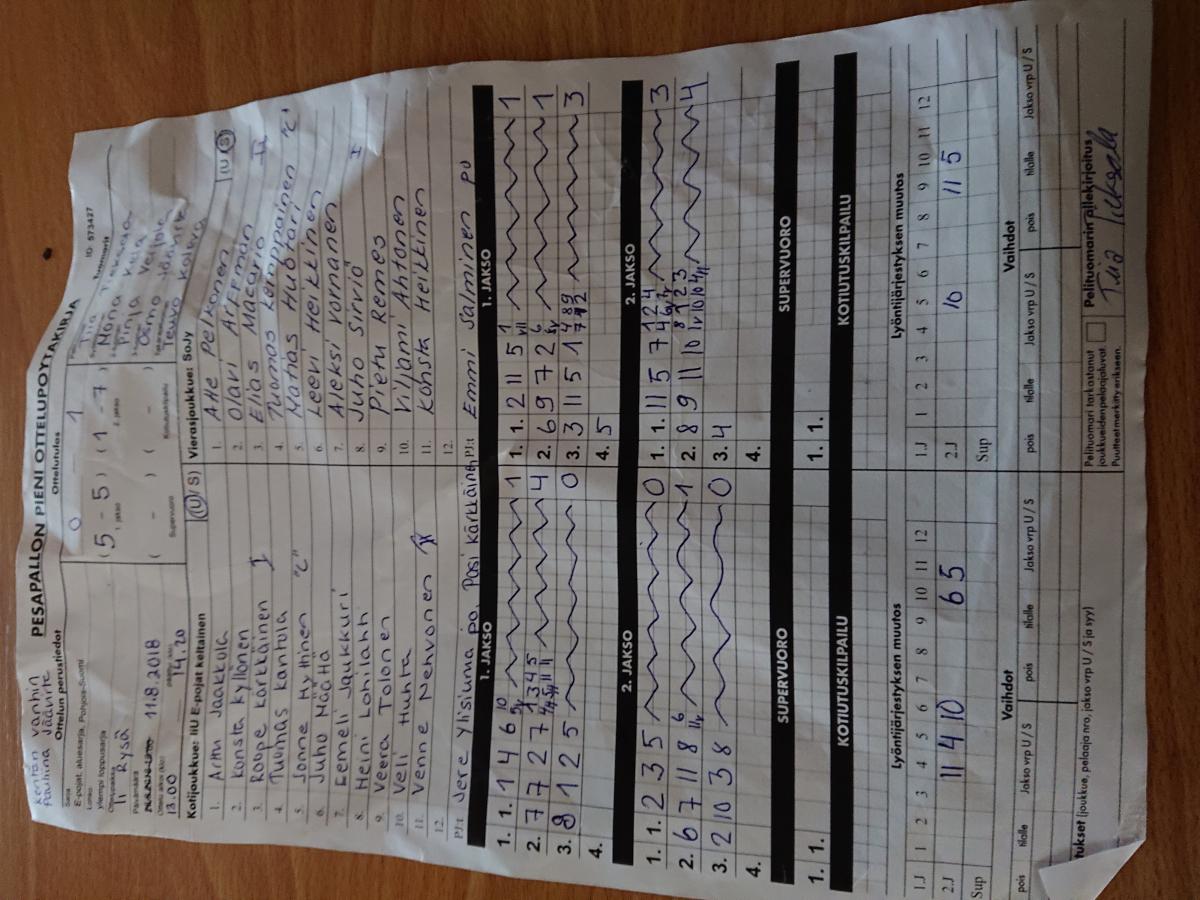 Kentän vanhin
Pauliina Jäävirta
PESÄPALLON PIENI OTTELUPÖYTÄKIRJA
ID: 573427
Ottelun perustiedot
Ottelutulos
Tuomarit
Sarja
E-pojat, aluesarja, Pohjois-Suomi
Lohko
Ylempi loppusarja
Ottelupaikka
Ii Rysä
Päivämäärä
11.8.2018
13.00
14.20
0 1
( 5 - 5 ) ( 1 - 7 )
1. jakso
2. jakso
( - ) ( - )
Supervuoro
Kotiutuskilpailu
Tiia
Noona
Pinja Kela
Osmo
Teuvo Koleva
Kotijoukkue: IiU E-pojat keltainen (U/S)
1. Arttu Jaakkola
2. Konsta Kyllönen
3. Roope Kärkkäinen I
4. Tuomas Kantola
5. Jonne Hyttinen "C"
6. Juho Määttä
7. Eemeli Jaukkuri
8. Heini Lohilahti
9. Veera Tolonen
10. Veli Huhta
11. Venne Mehvonen
12.
PJ:t Jere Ylisiurua po, Pasi Kärkkäinen
Vierasjoukkue: SoJy (U/S)
1. Atte Pelkonen
2. Olavi Arffman
3. Elias Macario II
4. Tuomas Kemppainen
5. Matias Huotari "C"
6. Leevi Heikkinen
7. Aleksi Vormanen
8. Juho Sirviö I
9. Pietu Remes
10. Viljami Ahtonen
11. Konsta Heikkinen
12.
PJ:t Emmi Salminen po
1. JAKSO
1. 1. 1 4 6 10 1
2. 7 7 2 7 1 3 4 5 4
3. 8 1 2 5 0
4.
1. JAKSO
1. 1. 2 11 5 1 1
2. 6 9 7 2 6 1
3. 3 11 5 1 4 8 9 3
4. 5
2. JAKSO
1. 1. 2 3 5 0
2. 6 7 11 8 6 1
3. 2 10 3 8 0
4.
2. JAKSO
1. 1. 11 5 7 1 2 4 3
2. 8 9 11 10 8 1 2 3 4
3. 4
4.
SUPERVUORO
1. 1.
SUPERVUORO
1. 1.
KOTIUTUSKILPAILU
KOTIUTUSKILPAILU
Lyöntijärjestyksen muutos
1.J 1 2 3 4 5 6 7 8 9 10 11 12
2.J 11 4 10 6 5
Sup
Lyöntijärjestyksen muutos
1.J 1 2 3 4 5 6 7 8 9 10 11 12
2.J 10 11 5
Sup
Vaihdot
pois tilalle Jakso vrp U / S pois tilalle Jakso vrp U / S
Vaihdot
pois tilalle Jakso vrp U / S pois tilalle Jakso vrp U / S
tukset (joukkue, pelaaja nro, jakso vrp U / S ja syy)
Pelituomari tarkastanut
joukkueidenpelaajaluvat
Puutteet merkitty erikseen.
Pelituomarin allekirjoitus
Tiia